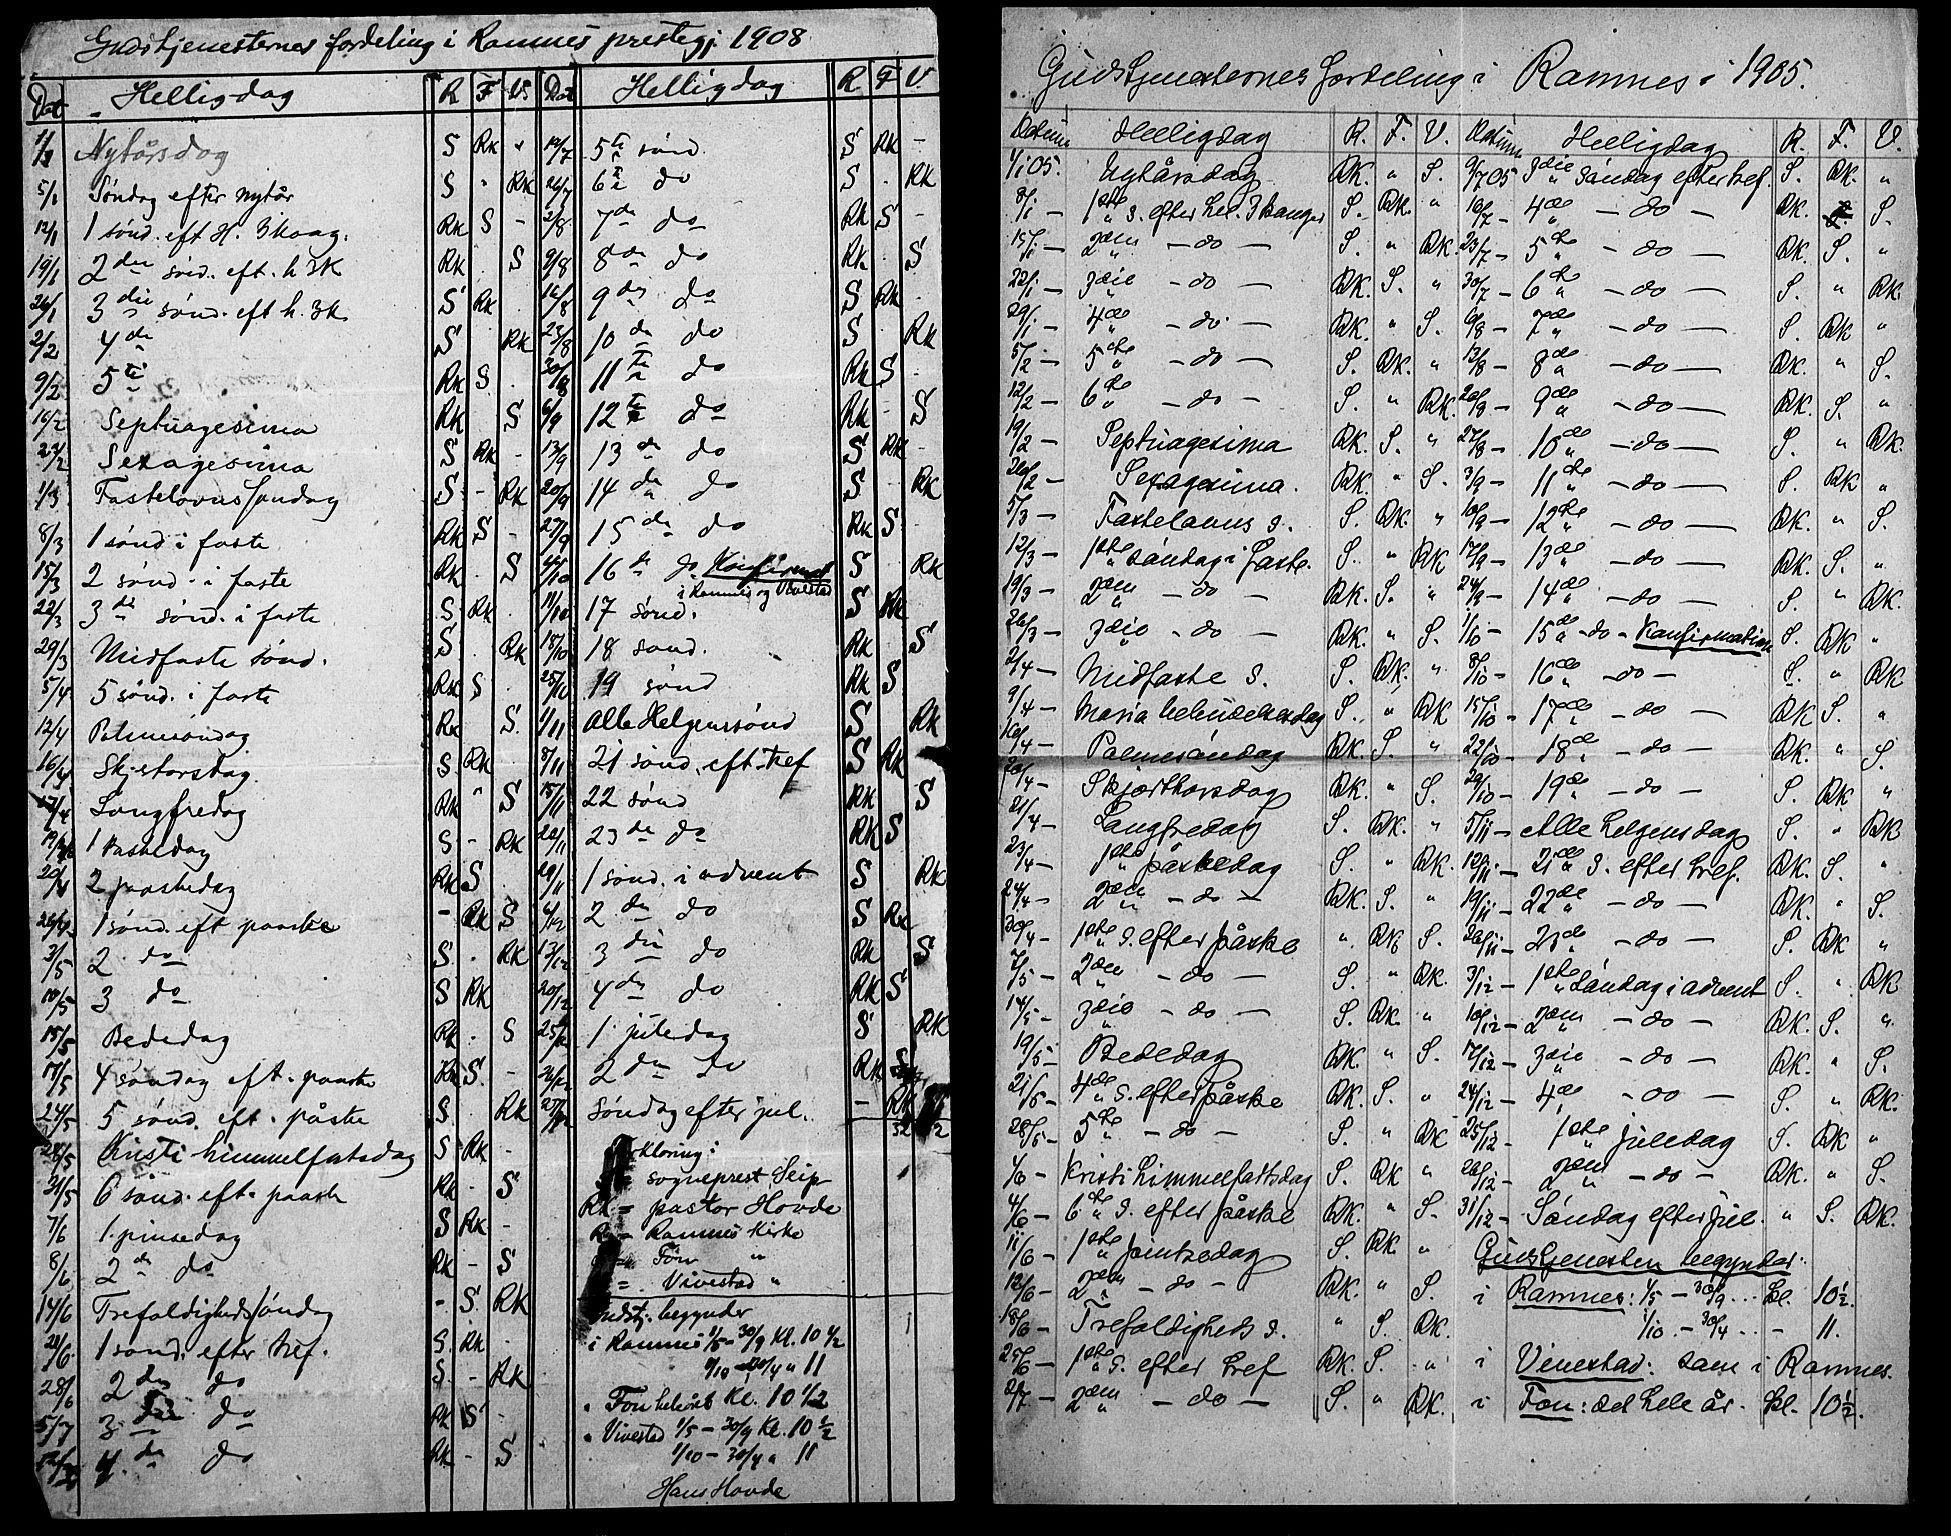 Gudstjenesternes fordeling i Ramnes prestegj. 1908
Dat Helligdag R F V. Dat Helligdag R F V
1/1 Nytårsdag S RK " 19/7 5te sønd. S RK -
5/1 Søndag efter nytår S " RK 26/7 6te do S RK
12/1 1 sønd. eft H. 3kong. RK S - 2/8 7de do RK S -
19/1 2den sønd. eft. h 3K RK . S 9/8 8de do RK . S
26/1 3die sønd. eft h. 3k S RK 16/8 9de do S RK .
2/2 4de S RK 23/8 10de do S RK
9/2 5te RK S . 30/8 11te do RK S -
16/2 Septuagesima RK S 6/9 12te do RK - S
23/2 Sexagesima S RK - 13/9 13de do S RK -
1/3 Fastelavnssøndag S - RK 20/9 14de do S RK
8/3 1 sønd i faste RK S - 27/9 15de do RK S
15/3 2 sønd. i faste RK . S 4/10 16de do Konfirmat S RK
i Ramnes og Vivestad
22/3 3de sønd. i faste S RK . 11/10 17 sønd. S RK
29/3 Midfaste sønd. S . RK 18/10 18 sønd. RK S
5/4 5 sønd. i faste RK S . 25/10 19 sønd RK S
12/4 Palmesøndag RK S. 1/11 Alle Helgenssønd S RK
16/4 Skjertorsdag S RK 8/11 21 sønd. eft. tref S RK
17/4 Langfredag RK " S 15/11 22 sønd RK S
19/4 1 paaskedag S - RK 22/11 23de do RK S
20/4 2 paaskedag RK S . 29/11 1 sønd. i advent S RK
26/4 1 sønd. eft paaske - RK S 6/12 2den do S RK
3/5 2 do S . RK 13/12 3die do RK S
10/5 3 do S RK 20/12 4de do RK S
15/5 Bededag RK . S 25/12 1. juledag S RK
17/5 4 søndag eft. paaske RK S. - 26/12 2den do RK S
24/5 5 sønd. eft. påske S . RK 27/12 Søndag efter jul. - RK S
28/5 Kristi himmelfartsdag S RK - Forklaring:
31/5 6 sønd. eft. paaske RK - S S = sogneprest Seip
7/6 1. pinsedag S RK - RK = pastor Hovde
8/6 2den do RK - S R = Ramnes Kirke
= Fon "
= Vivestad "
14/6 Trefoldighedssøndag - S. RK Gudstj. begynder
21/6 1 sønd. efter tref. S. RK - i Ramnes 1/5 - 30/9 Kl. 10 1/2
1/10 - 30/4 " 11
28/6 2den do S. - RK " Fon heleåret Kl. 10 1/2
5/7 3die do RK S - " Vivestad 1/5 - 30/9 Kl. 10 1/2
12/7 4de do RK - S 1/10 - 30/4 " 11
Hans Hovde
Gudstjenesternes fordeling i Ramnes i 1905.
Datum Helligdag R. F. V. Datum Helligdag R. F. V.
1/1 05. Nytårsdag RK. " S. 9/7 05 3die søndag efter tref. S. RK. "
8/1 - 1ste s. efter hel. 3 konger S. RK. " 16/7 - 4de - do - RK. " S.
15/1 - 2den - do - S. " RK. 23/7 - 5te - do - RK. S. "
22/1 - 3die - do - RK. S. " 30/7 - 6te - do - S. " RK.
29/1 - 4de - do - RK. " S. 6/8 - 7de - do - S. RK "
5/2 - 5te - do - S. RK. " 13/8 - 8de - do - RK. " S.
12/2 - 6te - do - S. " RK. 20/8 - 9de - do - RK. S. "
19/2 - Septuagesima RK. S. " 27/8 - 10de - do - S. " RK.
26/2 - Sexagesima. RK. " S. 3/9 - 11te - do - S. RK "
5/3 - Fastelavns s. S. RK. " 10/9 - 12te - do - RK. " S.
12/3 - 1ste søndag i faste. S. " RK 17/9 - 13de - do - RK. S. "
19/3 - 2den - do - RK. S. " 24/9 - 14de - do - S. " RK.
26/3 - 3die - do - RK. " S. 1/10 - 15de - do - Konfirmation S. RK "
2/4 - Midfaste s. S. RK. " 8/10 - 16de - do - S. " RK
9/4 - Maria bebudelsesdag S. " RK 15/10 - 17de - do - RK S. "
16/4 - Palmesøndag RK. S. " 22/10 - 18de - do - RK. " S.
20/4 - Skjærthorsdag RK. " S. 29/10 - 19de - do - S. RK "
21/4 - Langfredag S. RK. " 5/11 - Alle helgensdag S. " RK
23/4 - 1ste påskedag S. " RK. 12/11 - 21de s. efter tref. RK. S. "
24/4 - 2den - do - RK. S. " 19/11 - 22de - do - RK. " S.
30/4 - 1ste s. efter påske " RK S. 26/11 - 23de - do - S. RK "
7/5 - 2den - do - S. " RK. 3/12 - 1ste søndag i advent S. " RK
14/5 - 3die - do - S. RK. " 10/12 - 2den - do - RK. S. "
19/5 - Bededag RK. " S. 17/12 - 3die - do - RK. " S.
21/5 - 4de s. efter påske RK. S. " 24/12 - 4de - do - S. " RK.
28/5 - 5te - do - S. " RK 25/12 - 1ste juledag S. RK "
1/6 - Kristi himmelfartsdag S. RK " 26/12 - 2den - do - RK. " S.
4/6 - 6te s. efter påske RK. " S. 31/12 - Søndag efter jul. " S. RK.
11/6 - 1ste pintsedag S. RK. " Gudstjenesten begynder:
12/6 - 2den - do - RK. " S. i Ramnes: 1/5 - 30/9 ... kl. 10 1/2.
18/6 - Trefoldigheds s. " S. RK. 1/10 - 30/4 ... - 11.
25/6 - 1ste s. efter tref RK. S. " i Vivestad: som i Ramnes.
2/7 - 2den - do - S. " RK. i Fon: det hele år. kl. 10 1/2.